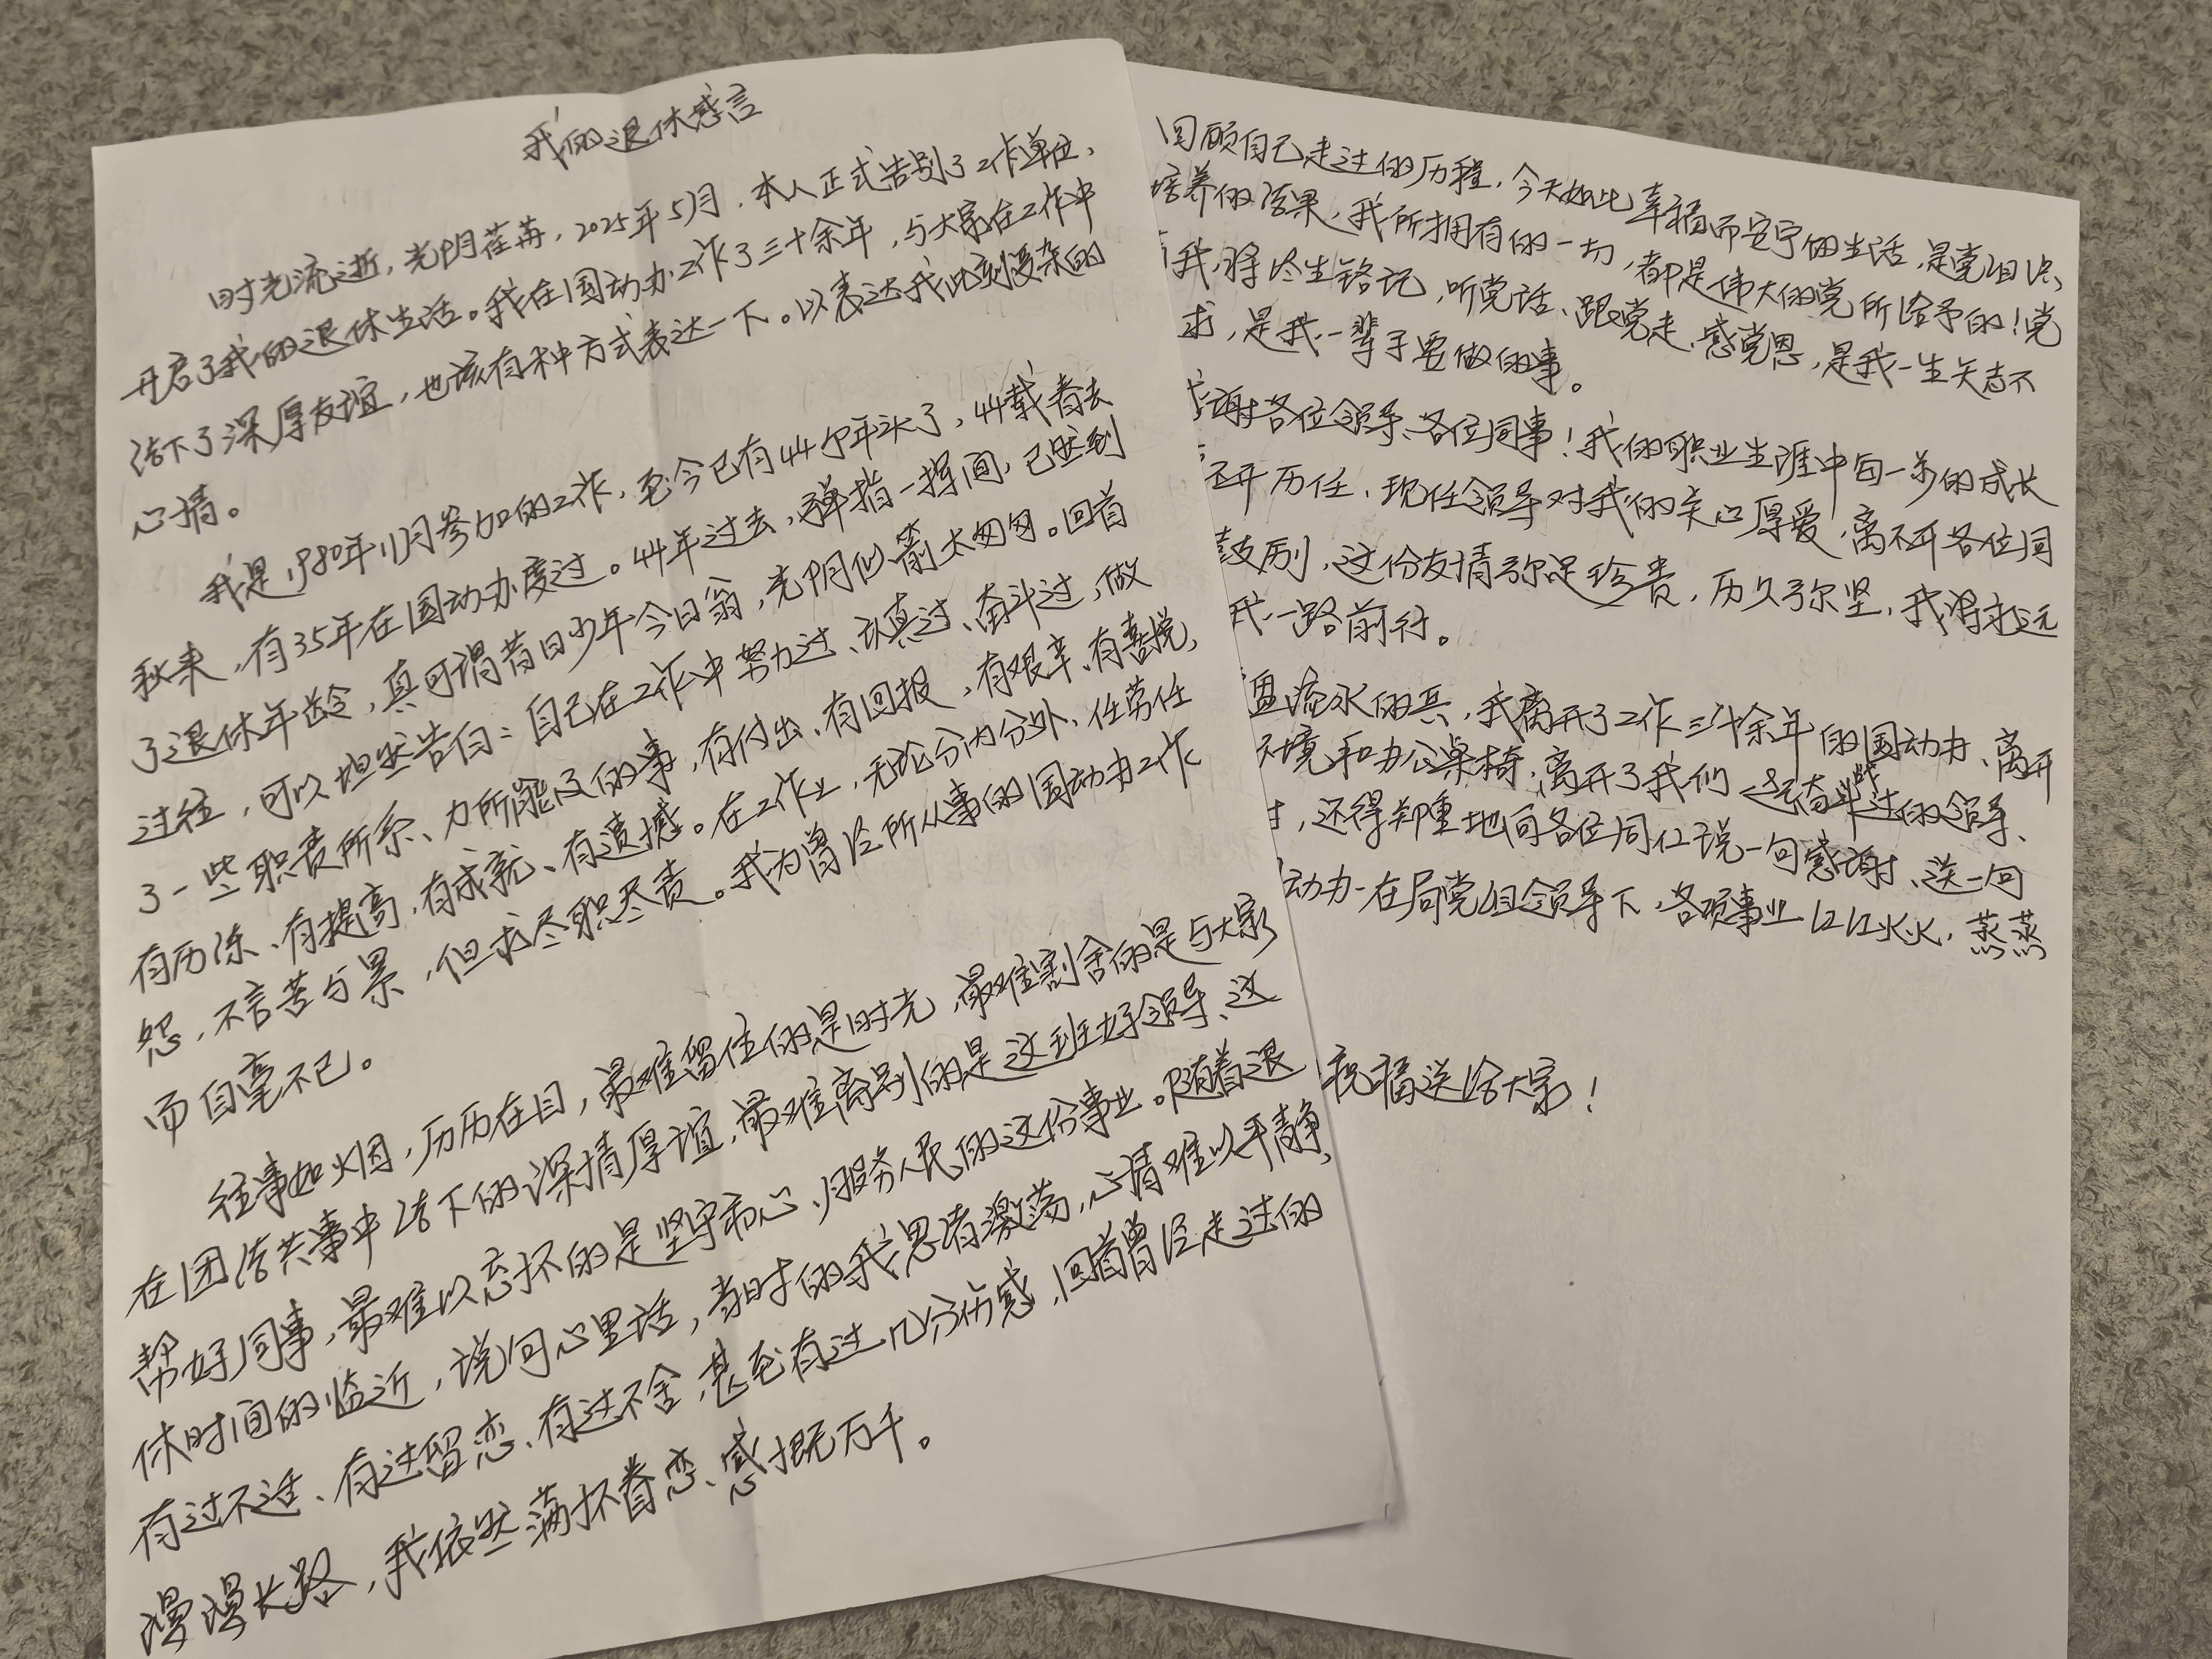 我的退休感言
时光流逝，光阴荏苒，2025年5月，本人正式告别了工作单位，
开启了我的退休生活。我在国动办工作了三十余年，与大家在工作中
结下了深厚友谊，也该有种方式表达一下。以表达我此刻复杂的
心情。
我是1980年11月参加的工作，至今已有44个年头了，44载春去
秋来，有35年在国动办度过。44年过去，弹指一挥间，已然到
了退休年龄，真可谓昔日少年今日翁，光阴似箭太匆匆。回首
过往，可以坦然告白：自己在工作中努力过、认真过、奋斗过，做
了一些职责所系、力所能及的事，有付出、有回报，有艰辛、有喜悦，
有历练、有提高，有成就、有遗憾。在工作上，无论分内分外、任劳任
怨，不言苦与累，但求尽职尽责。我为曾经所从事的国动办工作
而自豪不已。
往事如烟，历历在目，最难留住的是时光，最难割舍的是与大家
在团结共事中结下的深情厚谊，最难离别的是这班好领导、这
帮好同事，最难以忘怀的是坚守初心、服务人民的这份事业。随着退
休时间的临近，说句心里话，当时的我思绪激荡，心情难以平静，
有过不适、有过留恋、有过不舍，甚至有过几分伤感，回首曾经走过的
漫漫长路，我依然满怀眷恋、感慨万千。
回顾自己走过的历程，今天如此幸福而安宁的生活，是党组织
培养的结果，我所拥有的一切，都是伟大的党所给予的！党
我将终生铭记，听党话、跟党走、感党恩，是我一生矢志不
求，是我一辈子要做的事。
谢各位领导、各位同事！我的职业生涯中每一步的成长
不开历任、现任领导对我的关心厚爱，离不开各位同
鼓励，这份友情弥足珍贵，历久弥坚，我将永远
我一路前行。
盘流水的兵，我离开了工作三十余年的国动办、离开
环境和办公桌椅，离开了我们一起奋战过的领导、
，还得郑重地向各位同仁说一句感谢、送一句
动办在局党组领导下，各项事业红红火火，蒸蒸
祝福送给大家！